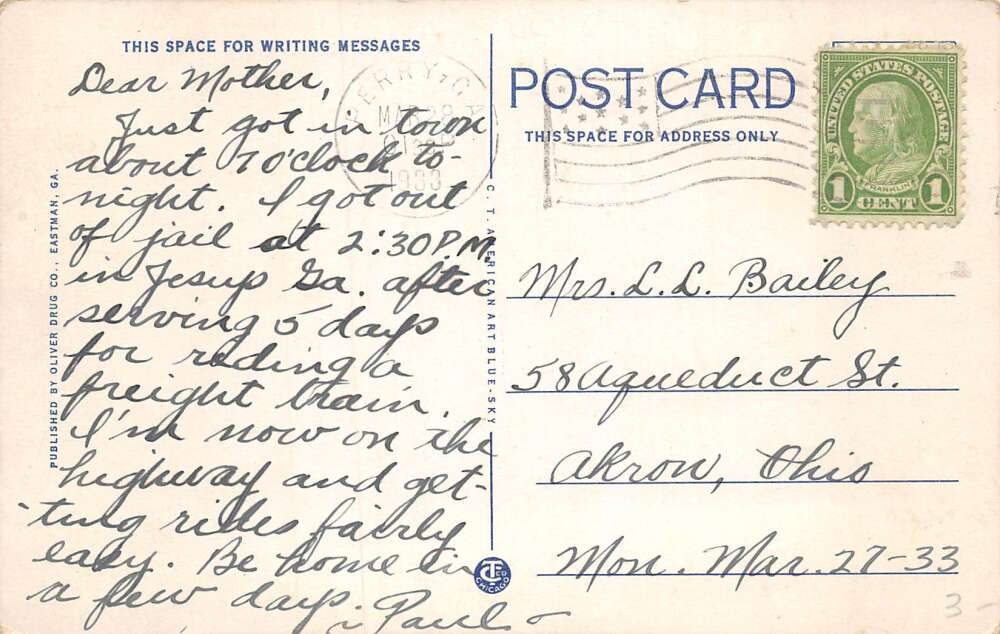 THIS SPACE FOR WRITING MESSAGES
Dear Mother,
Just got in town
about 7 o'clock to-
night. I got out
of jail at 2:30 P.M.
in Jesup Ga. after
serving 5 days
for riding a
freight train.
I'm now on the
highway and get-
ting rides fairly
easy. Be home in
a few days. Paul
PUBLISHED BY OLIVER DRUG CO., EASTMAN, GA.
C. T. AMERICAN ART BLUE-SKY
CT CO
CHICAGO
PERRY, GA.
MAR 28
1933
POST CARD
THIS SPACE FOR ADDRESS ONLY
UNITED STATES POSTAGE
FRANKLIN
1 CENT 1
Mrs. L. L. Bailey
58 Aqueduct St.
Akron, Ohio
Mon. Mar. 27-33
3-